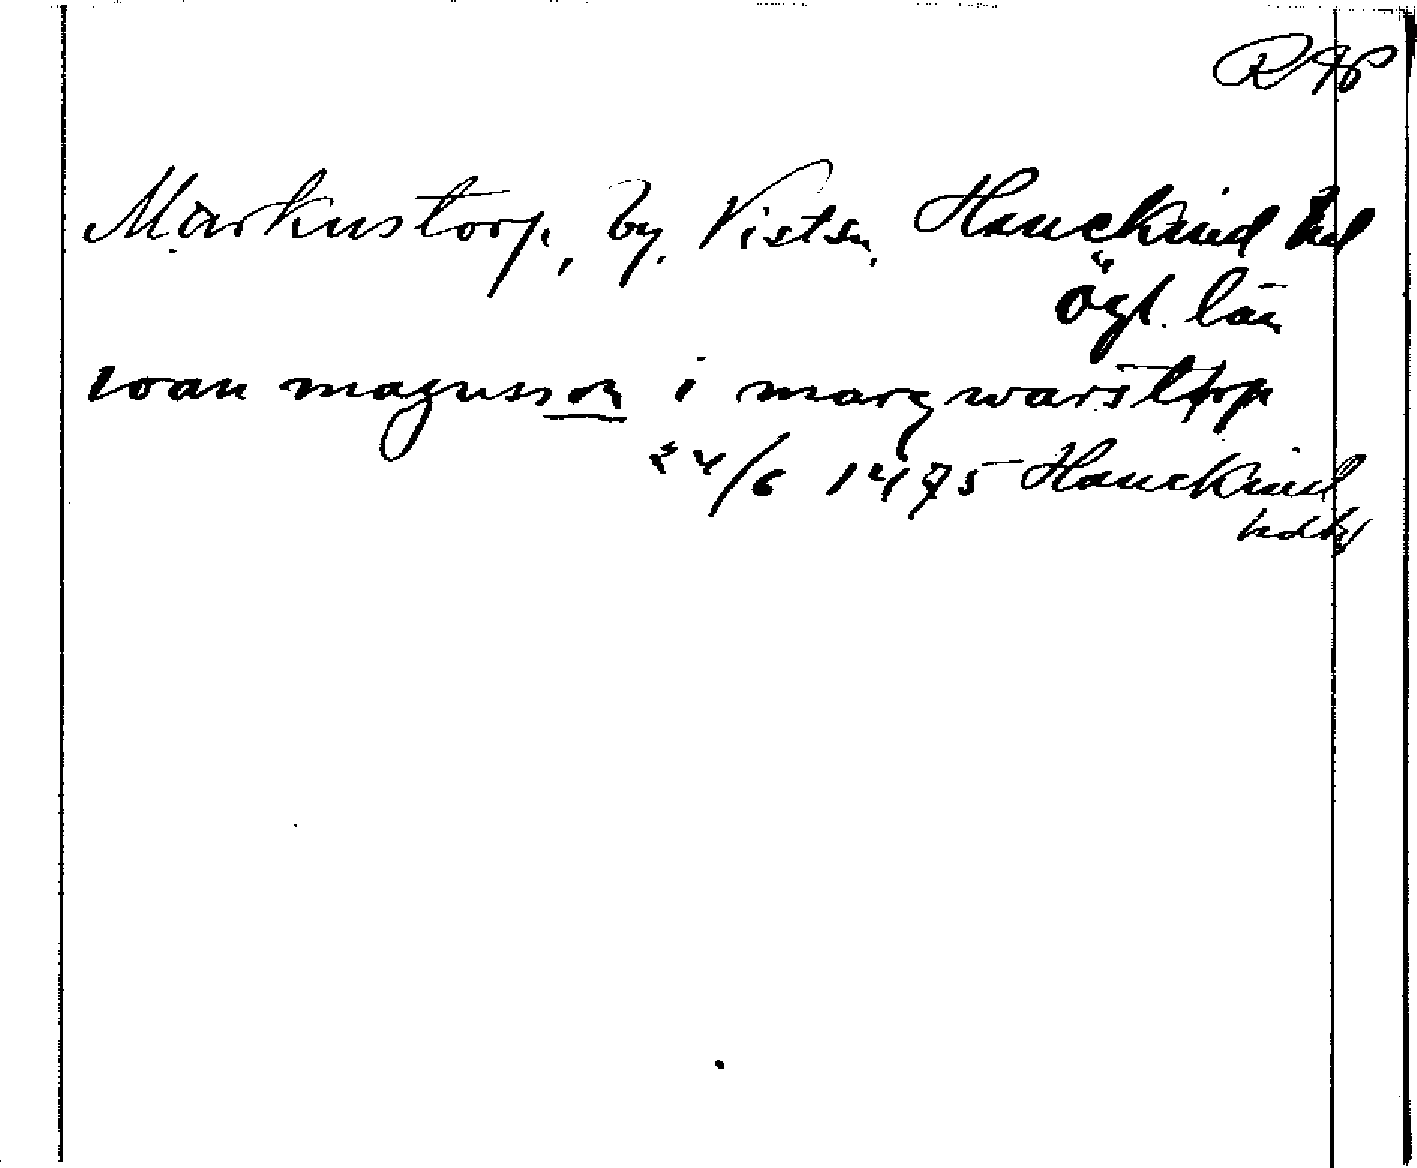 RAp
Markustorp, by, Vist sn, Hanekind hd
Ögl. län
ioan magnusson i marqwarsttorp
24/6 1475 Hanekind
hdbr